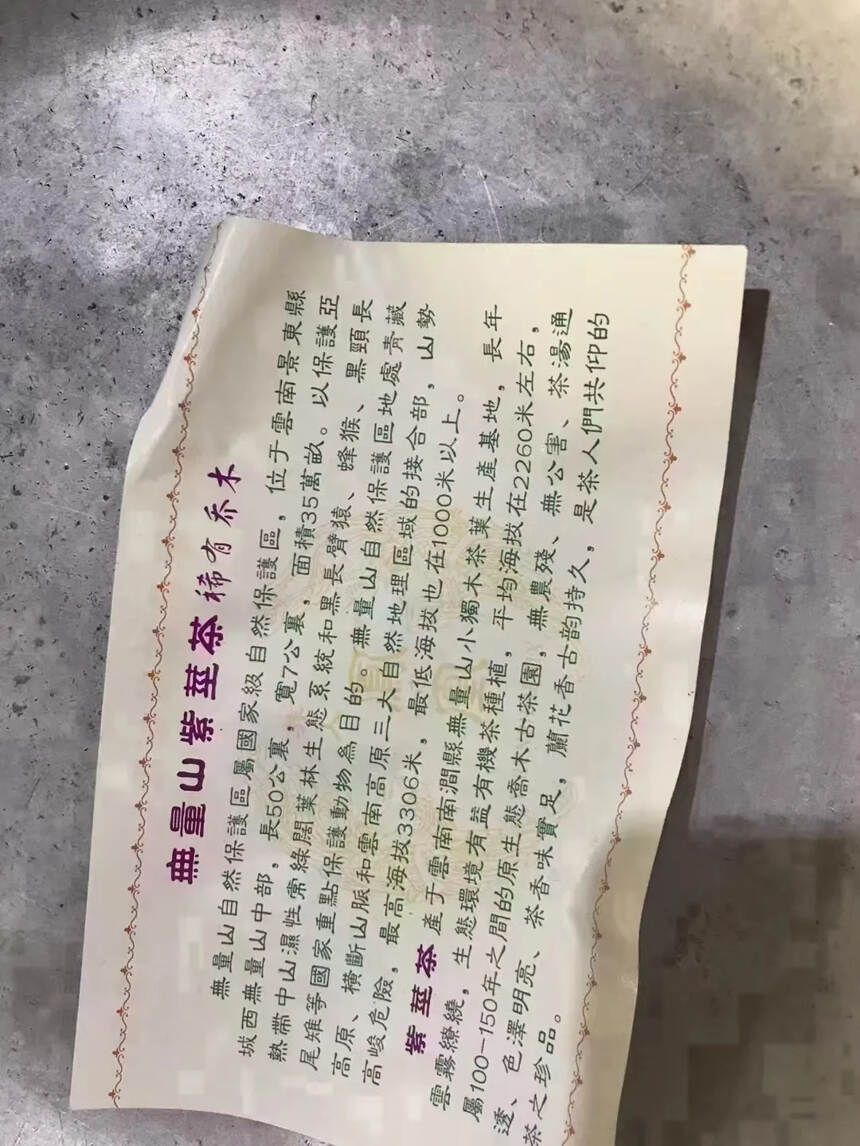 無量山紫莖茶 稀有喬木
無量山自然保護區屬國家級自然保護區，位于雲南景東縣
城西無量山中部，長50公裏，寬7公裏，面積35萬畝。以保護亞
熱帶中山濕性常綠闊葉林生態系統和黑長臂猿、蜂猴、黑頸長
尾雉等國家重點保護動物為目的。無量山自然保護區地處青藏
高原、橫斷山脈和雲南高原三大自然地理區域的接合部，山勢
高峻危險，最高海拔3306米，最低海拔也在1000米以上。
紫莖茶 產于雲南南澗縣無量山小獨木茶葉生產基地，長年
雲霧繚繞，生態環境有益有機茶種植，平均海拔在2260米左右，
屬100-150年之間的原生態喬木古茶園，無農殘、無公害、茶湯通
透、色澤明亮、茶香味實足，蘭花香古韵持久，是茶人們共仰的
茶之珍品。